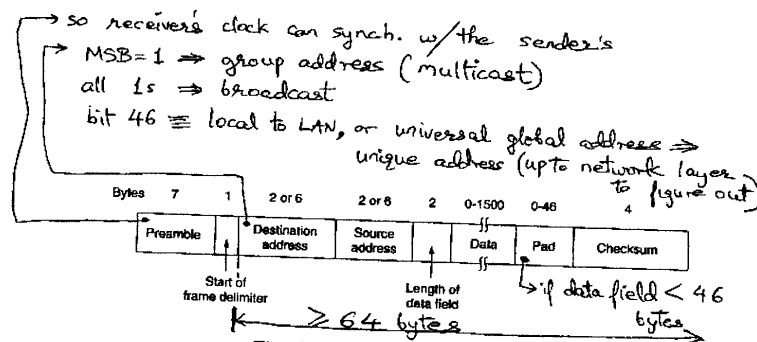 so receiver's clock can synch. w/ the sender's
MSB=1 ⇒ group address (multicast)
all 1s ⇒ broadcast
bit 46 ≡ local to LAN, or universal global address ⇒
unique address (up to network layer
to figure out)
Bytes 7 1 2 or 6 2 or 6 2 0-1500 0-46 4
Preamble Destination address Source address Data Pad Checksum
Start of frame delimiter
Length of data field
if data field < 46
bytes
≥ 64 bytes